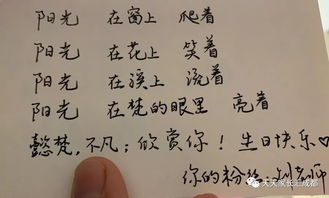 阳光 在窗上 爬着
阳光 在花上 笑着
阳光 在溪上 流着
阳光 在梵的眼里 亮着
懿梵，不凡；欣赏你！生日快乐♡
你的粉丝：刘老师
天天家长汇成都